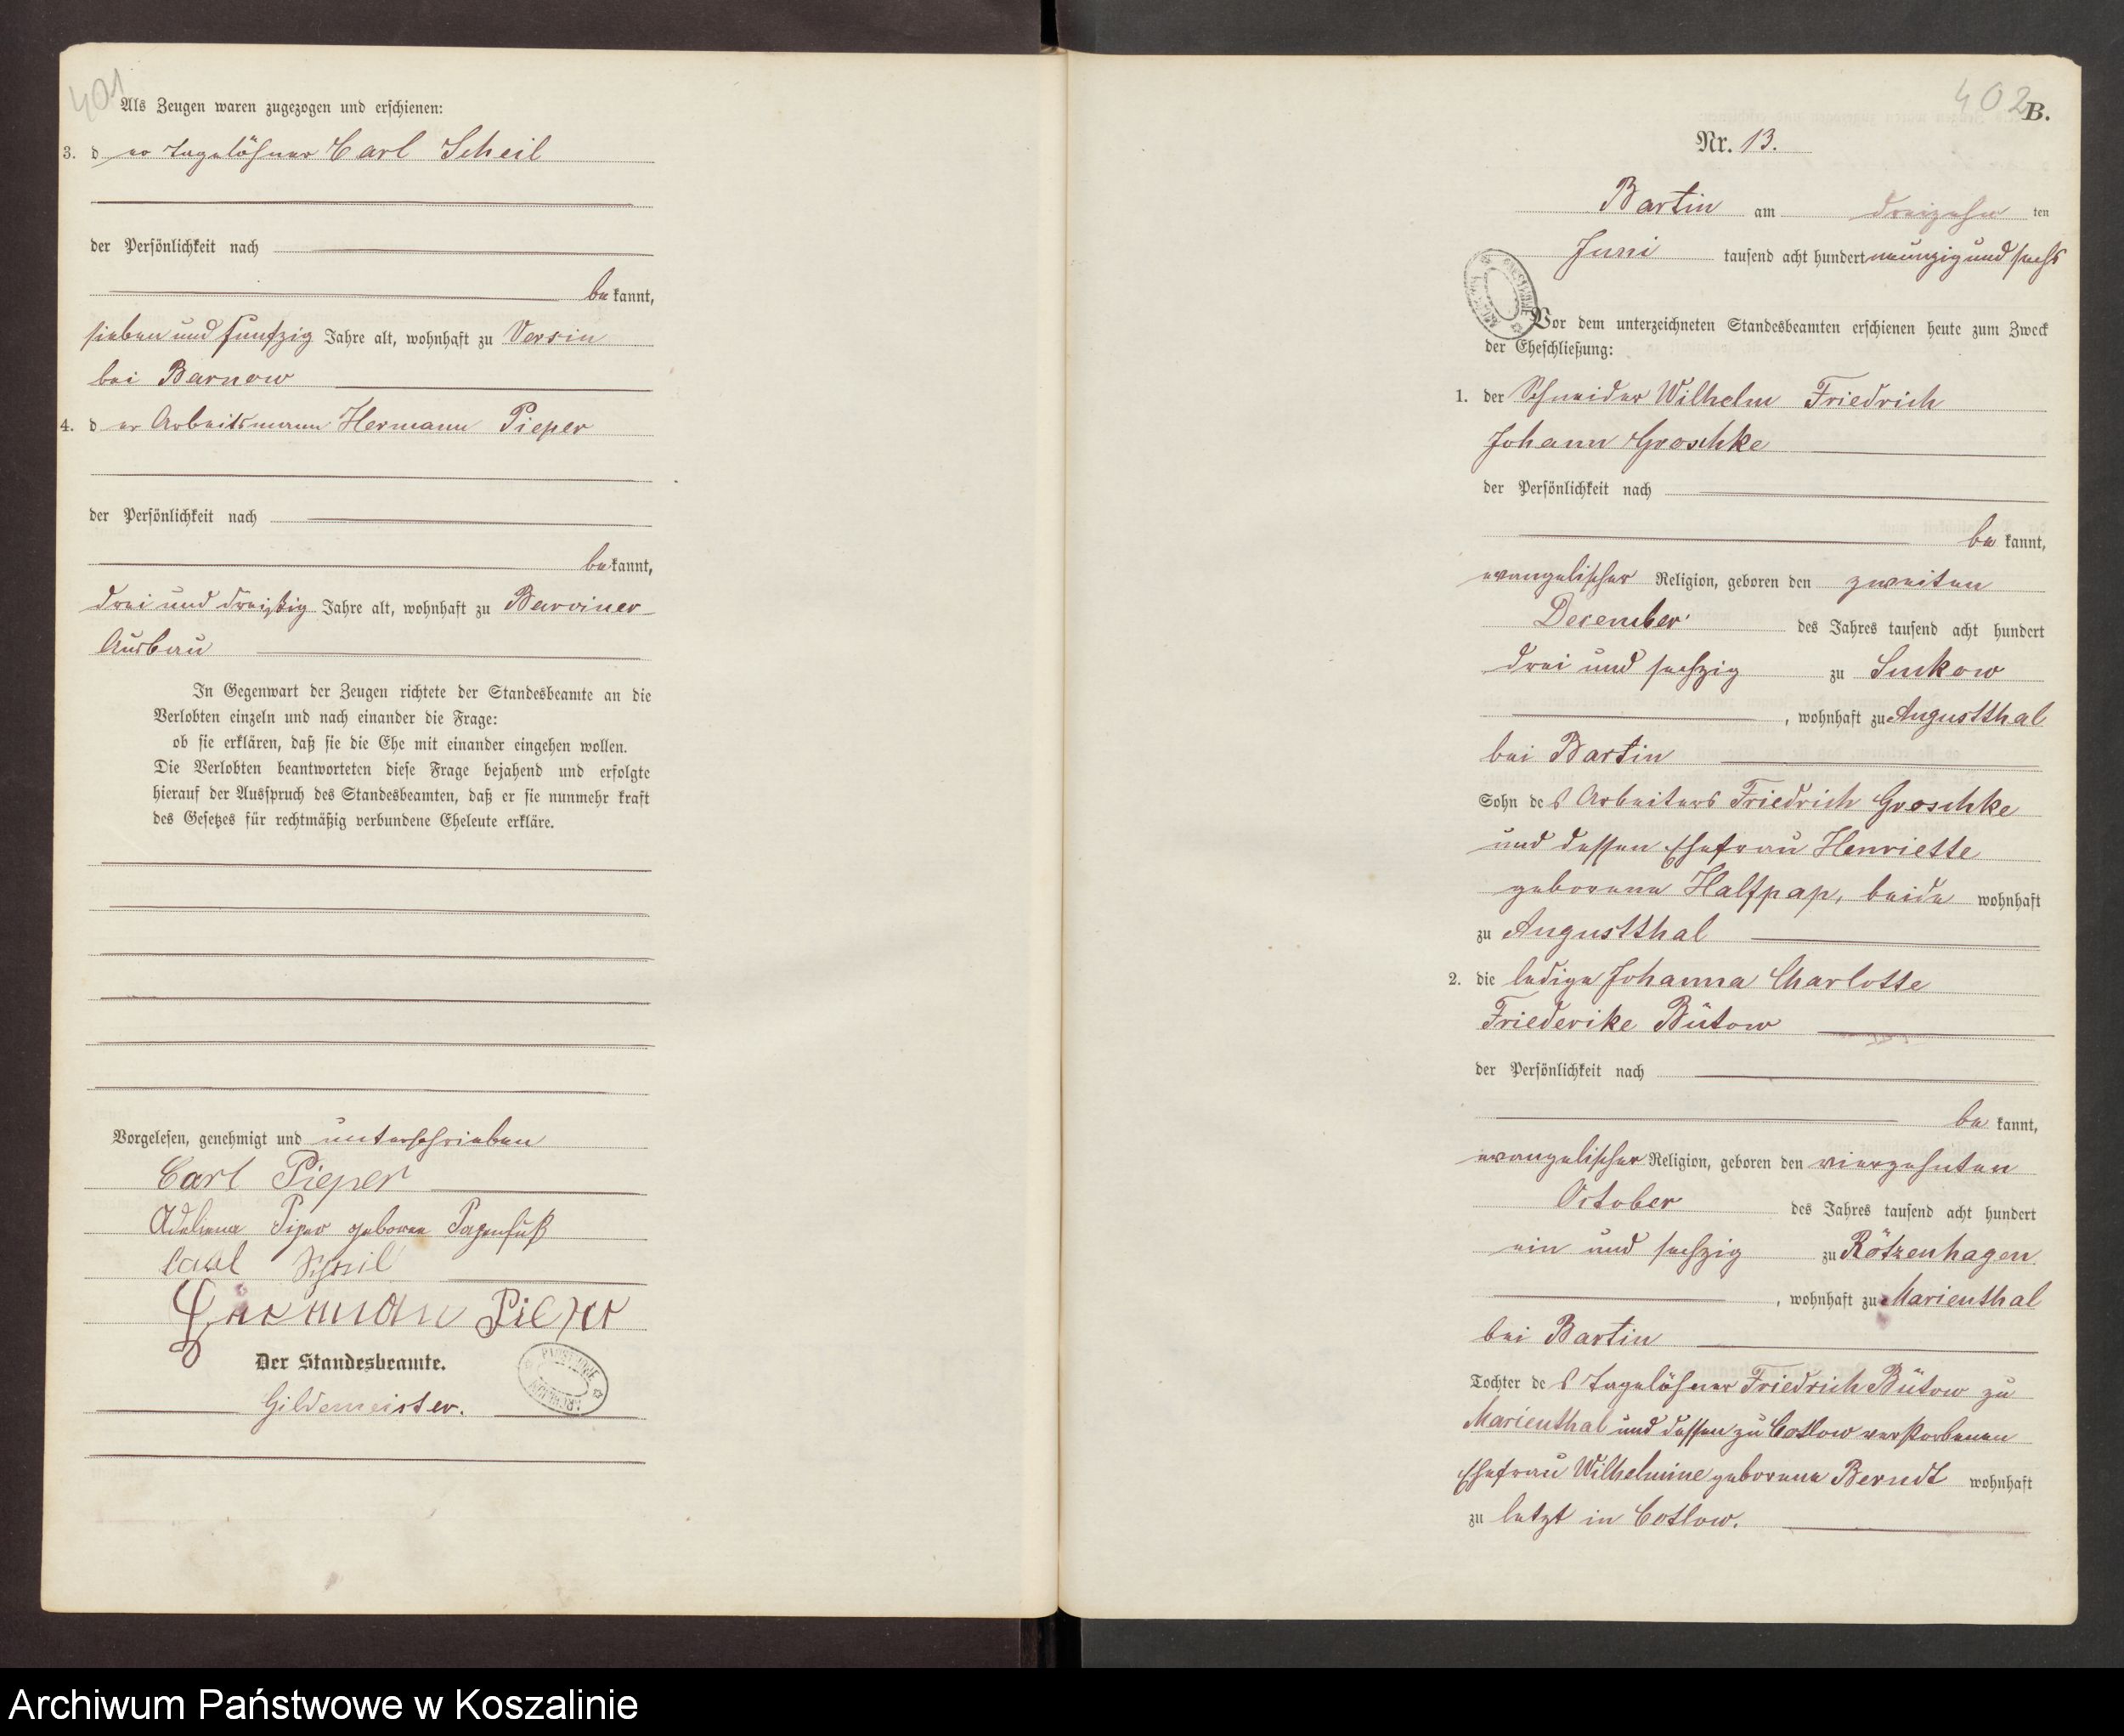 401
Als Zeugen waren zugezogen und erschienen:
3. der Tagelöhner Carl Scheil
der Persönlichkeit nach
bekannt,
sieben und funfzig Jahre alt, wohnhaft zu Versin
bei Barnow
4. der Arbeitsmann Hermann Pieper
der Persönlichkeit nach
bekannt,
drei und dreißig Jahre alt, wohnhaft zu Barviner
Ausbau
In Gegenwart der Zeugen richtete der Standesbeamte an die
Verlobten einzeln und nach einander die Frage:
ob sie erklären, daß sie die Ehe mit einander eingehen wollen.
Die Verlobten beantworteten diese Frage bejahend und erfolgte
hierauf der Ausspruch des Standesbeamten, daß er sie nunmehr kraft
des Gesetzes für rechtmäßig verbundene Eheleute erkläre.
Vorgelesen, genehmigt und unterschrieben
Carl Pieper
Piper geboren
Carl Scheil
Herman Pieper
Der Standesbeamte.
Gildemeister.
402
B.
Nr. 13.
Bartin am dreizehn ten
Juni tausend acht hundert neunzig und sechs
Vor dem unterzeichneten Standesbeamten erschienen heute zum Zweck
der Eheschließung:
1. der Schneider Wilhelm Friedrich
Johann Groschke
der Persönlichkeit nach
bekannt,
evangelischer Religion, geboren den zweiten
December des Jahres tausend acht hundert
drei und sechzig zu Suckow
, wohnhaft zu Augustthal
bei Bartin
Sohn des Arbeiters Friedrich Groschke
und dessen Ehefrau Henriette
geborene Halfpap, beide wohnhaft
zu Augustthal
2. die ledige Johanna Charlotte
Friederike Bütow
der Persönlichkeit nach
bekannt,
evangelischer Religion, geboren den vierzehnten
October des Jahres tausend acht hundert
ein und sechzig zu Rötzenhagen
, wohnhaft zu Marienthal
bei Bartin
Tochter des Tagelöhner Friedrich Bütow zu
Marienthal und dessen zu Cotlow verstorbenen
Ehefrau Wilhelmine geborene Berndt wohnhaft
zu letzt in Cotlow.
Archiwum Państwowe w Koszalinie